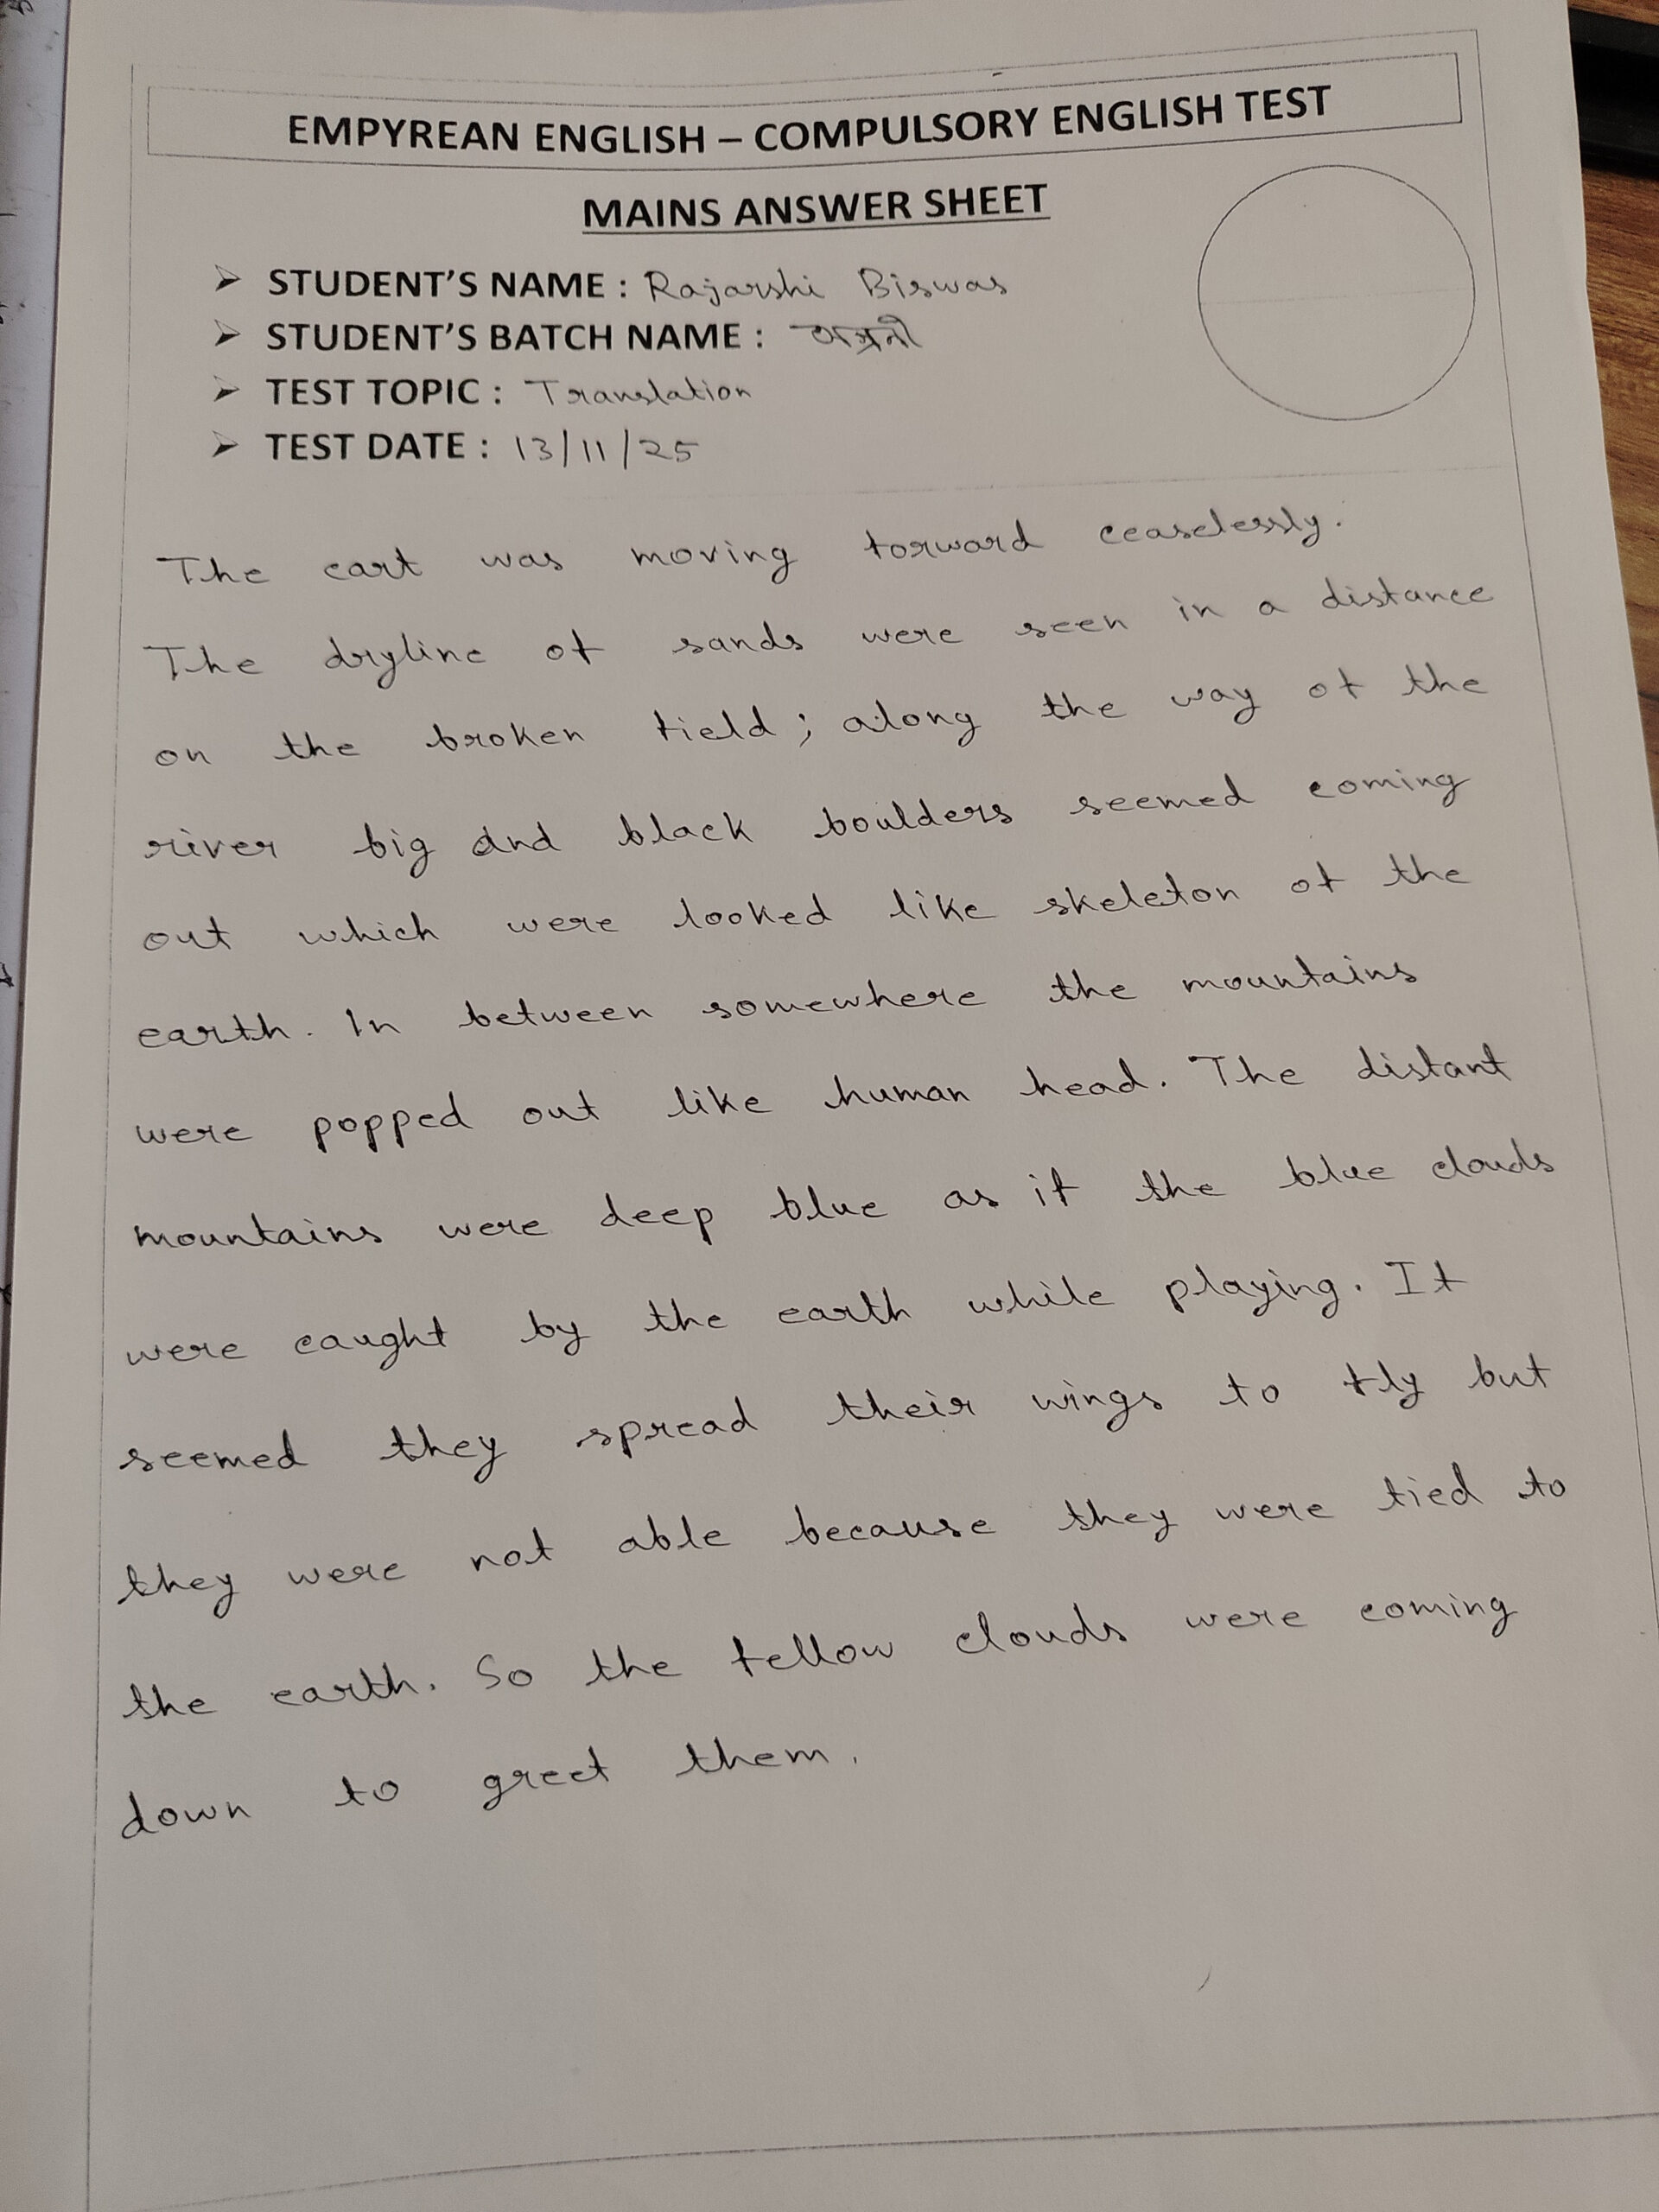 EMPYREAN ENGLISH – COMPULSORY ENGLISH TEST
MAINS ANSWER SHEET
➢ STUDENT'S NAME : Rajarshi Biswas
➢ STUDENT'S BATCH NAME : অগ্রণী
➢ TEST TOPIC : Translation
➢ TEST DATE : 13/11/25
The cart was moving forward ceaselessly.
The dryline of sands were seen in a distance
on the broken field; along the way of the
river big and black boulders seemed coming
out which were looked like skeleton of the
earth. In between somewhere the mountains
were popped out like human head. The distant
mountains were deep blue as if the blue clouds
were caught by the earth while playing. It
seemed they spread their wings to fly but
they were not able because they were tied to
the earth. So the fellow clouds were coming
down to greet them.